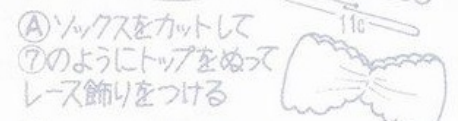 11c
Ⓐソックスをカットして
⑦のようにトップをぬって
レース飾りをつける